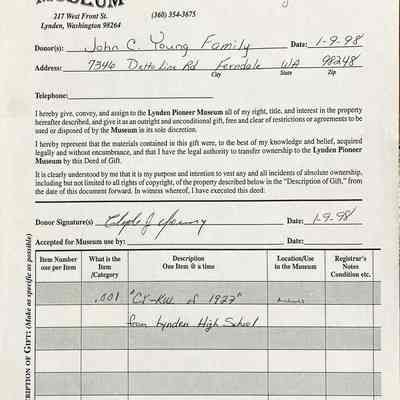 MUSEUM
217 West Front St. (360) 354-3675
Lynden, Washington 98264
Donor(s): John C. Young Family Date: 1-9-98
Address: 7346 Delta Line Rd Ferndale WA 98248
City State Zip
Telephone:
I hereby give, convey, and assign to the Lynden Pioneer Museum all of my right, title, and interest in the property
hereafter described, and give it as an outright and unconditional gift, free and clear of restrictions or agreements to be
used or disposed of by the Museum in its sole discretion.
I hereby represent that the materials contained in this gift were, to the best of my knowledge and belief, acquired
legally and without encumbrance, and that I have the legal authority to transfer ownership to the Lynden Pioneer
Museum by this Deed of Gift.
It is clearly understood by me that it is my purpose and intent to vest any and all incidents of absolute ownership,
including but not limited to all rights of copyright, of the property described below in the "Description of Gift," from the
date of this document forward. In witness whereof, I have executed this deed:
Donor Signature(s) Clyde J Young Date: 1-9-98
Accepted for Museum use by: Date:
DESCRIPTION OF GIFT: (Make as specific as possible)
Item Number
one per Item
What is the
Item
/Category
Description
One Item @ a time
Location/Use
in the Museum
Registrar's
Notes
Condition etc.
.001 "CY-KU" of 1927" Archives
from Lynden High School